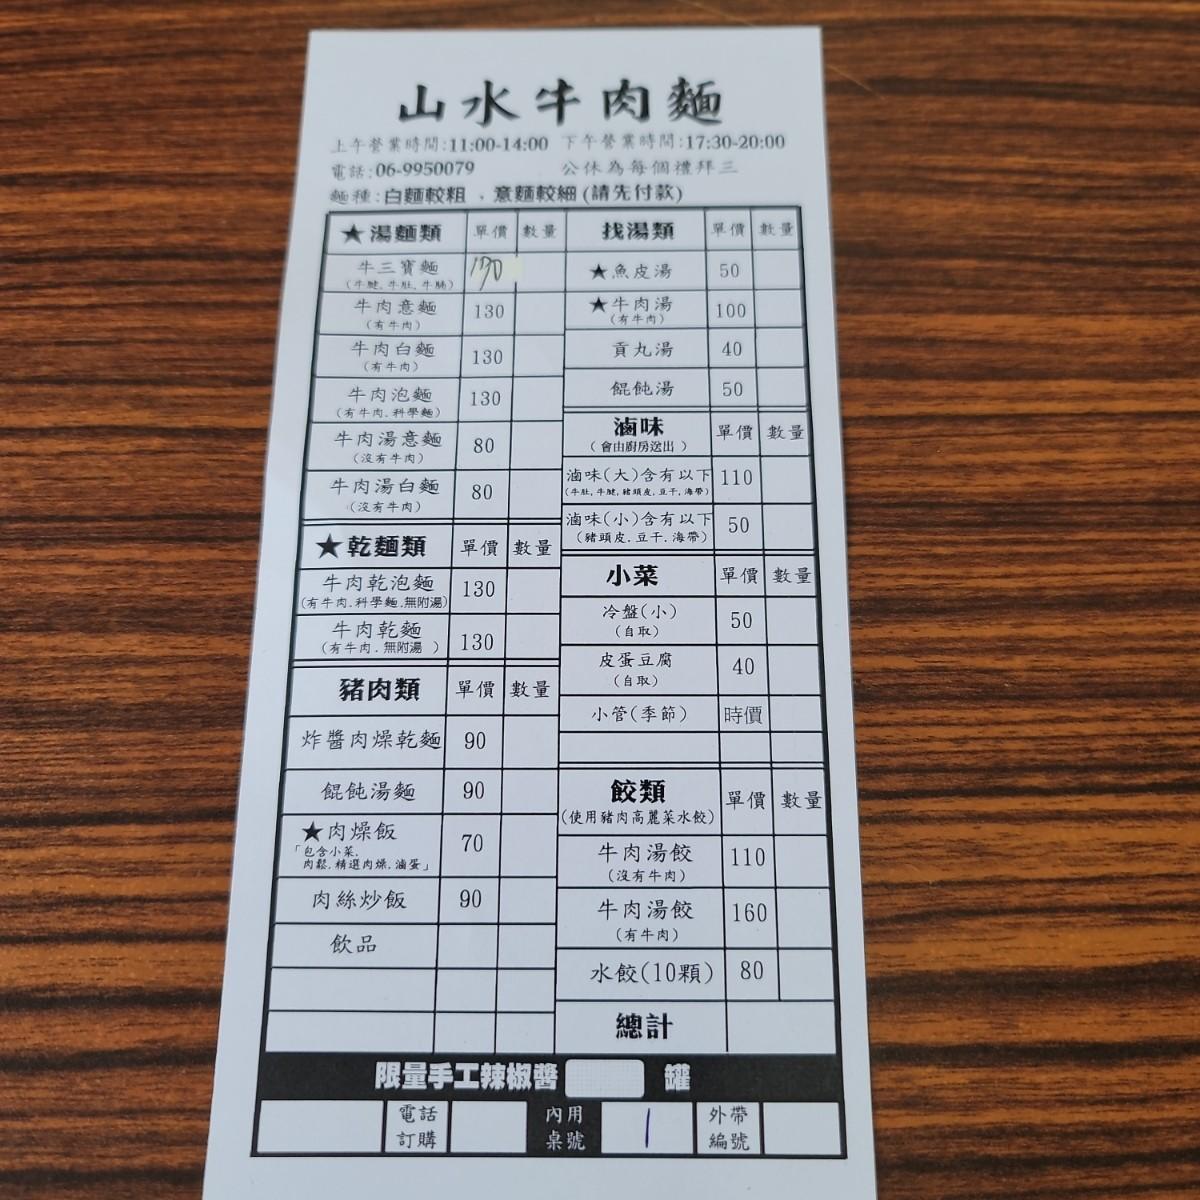 山水牛肉麵
上午營業時間:11:00-14:00 下午營業時間:17:30-20:00
電話:06-9950079 公休為每個禮拜三
麵種:白麵較粗、意麵較細(請先付款)
★湯麵類 單價 數量
牛三寶麵 170
(牛腱.牛肚.牛腩)
牛肉意麵 130
(有牛肉)
牛肉白麵 130
(有牛肉)
牛肉泡麵 130
(有牛肉.科學麵)
牛肉湯意麵 80
(沒有牛肉)
牛肉湯白麵 80
(沒有牛肉)
★乾麵類 單價 數量
牛肉乾泡麵 130
(有牛肉.科學麵.無附湯)
牛肉乾麵 130
(有牛肉.無附湯 )
豬肉類 單價 數量
炸醬肉燥乾麵 90
餛飩湯麵 90
★肉燥飯 70
「包含小菜.
肉鬆.精選肉燥.滷蛋」
肉絲炒飯 90
飲品
找湯類 單價 數量
★魚皮湯 50
★牛肉湯 100
(有牛肉)
貢丸湯 40
餛飩湯 50
滷味 單價 數量
(會由廚房送出)
滷味(大)含有以下 110
(牛肚.牛腱.豬頭皮.豆干.海帶)
滷味(小)含有以下 50
(豬頭皮.豆干.海帶)
小菜 單價 數量
冷盤(小) 50
(自取)
皮蛋豆腐 40
(自取)
小管(季節) 時價
餃類 單價 數量
(使用豬肉高麗菜水餃)
牛肉湯餃 110
(沒有牛肉)
牛肉湯餃 160
(有牛肉)
水餃(10顆) 80
總計
限量手工辣椒醬 罐
電話 內用 1 外帶
訂購 桌號 編號